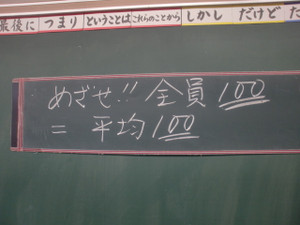 最後に つまり ということは これらのことから しかし だけど
めざせ!! 全員100
= 平均100